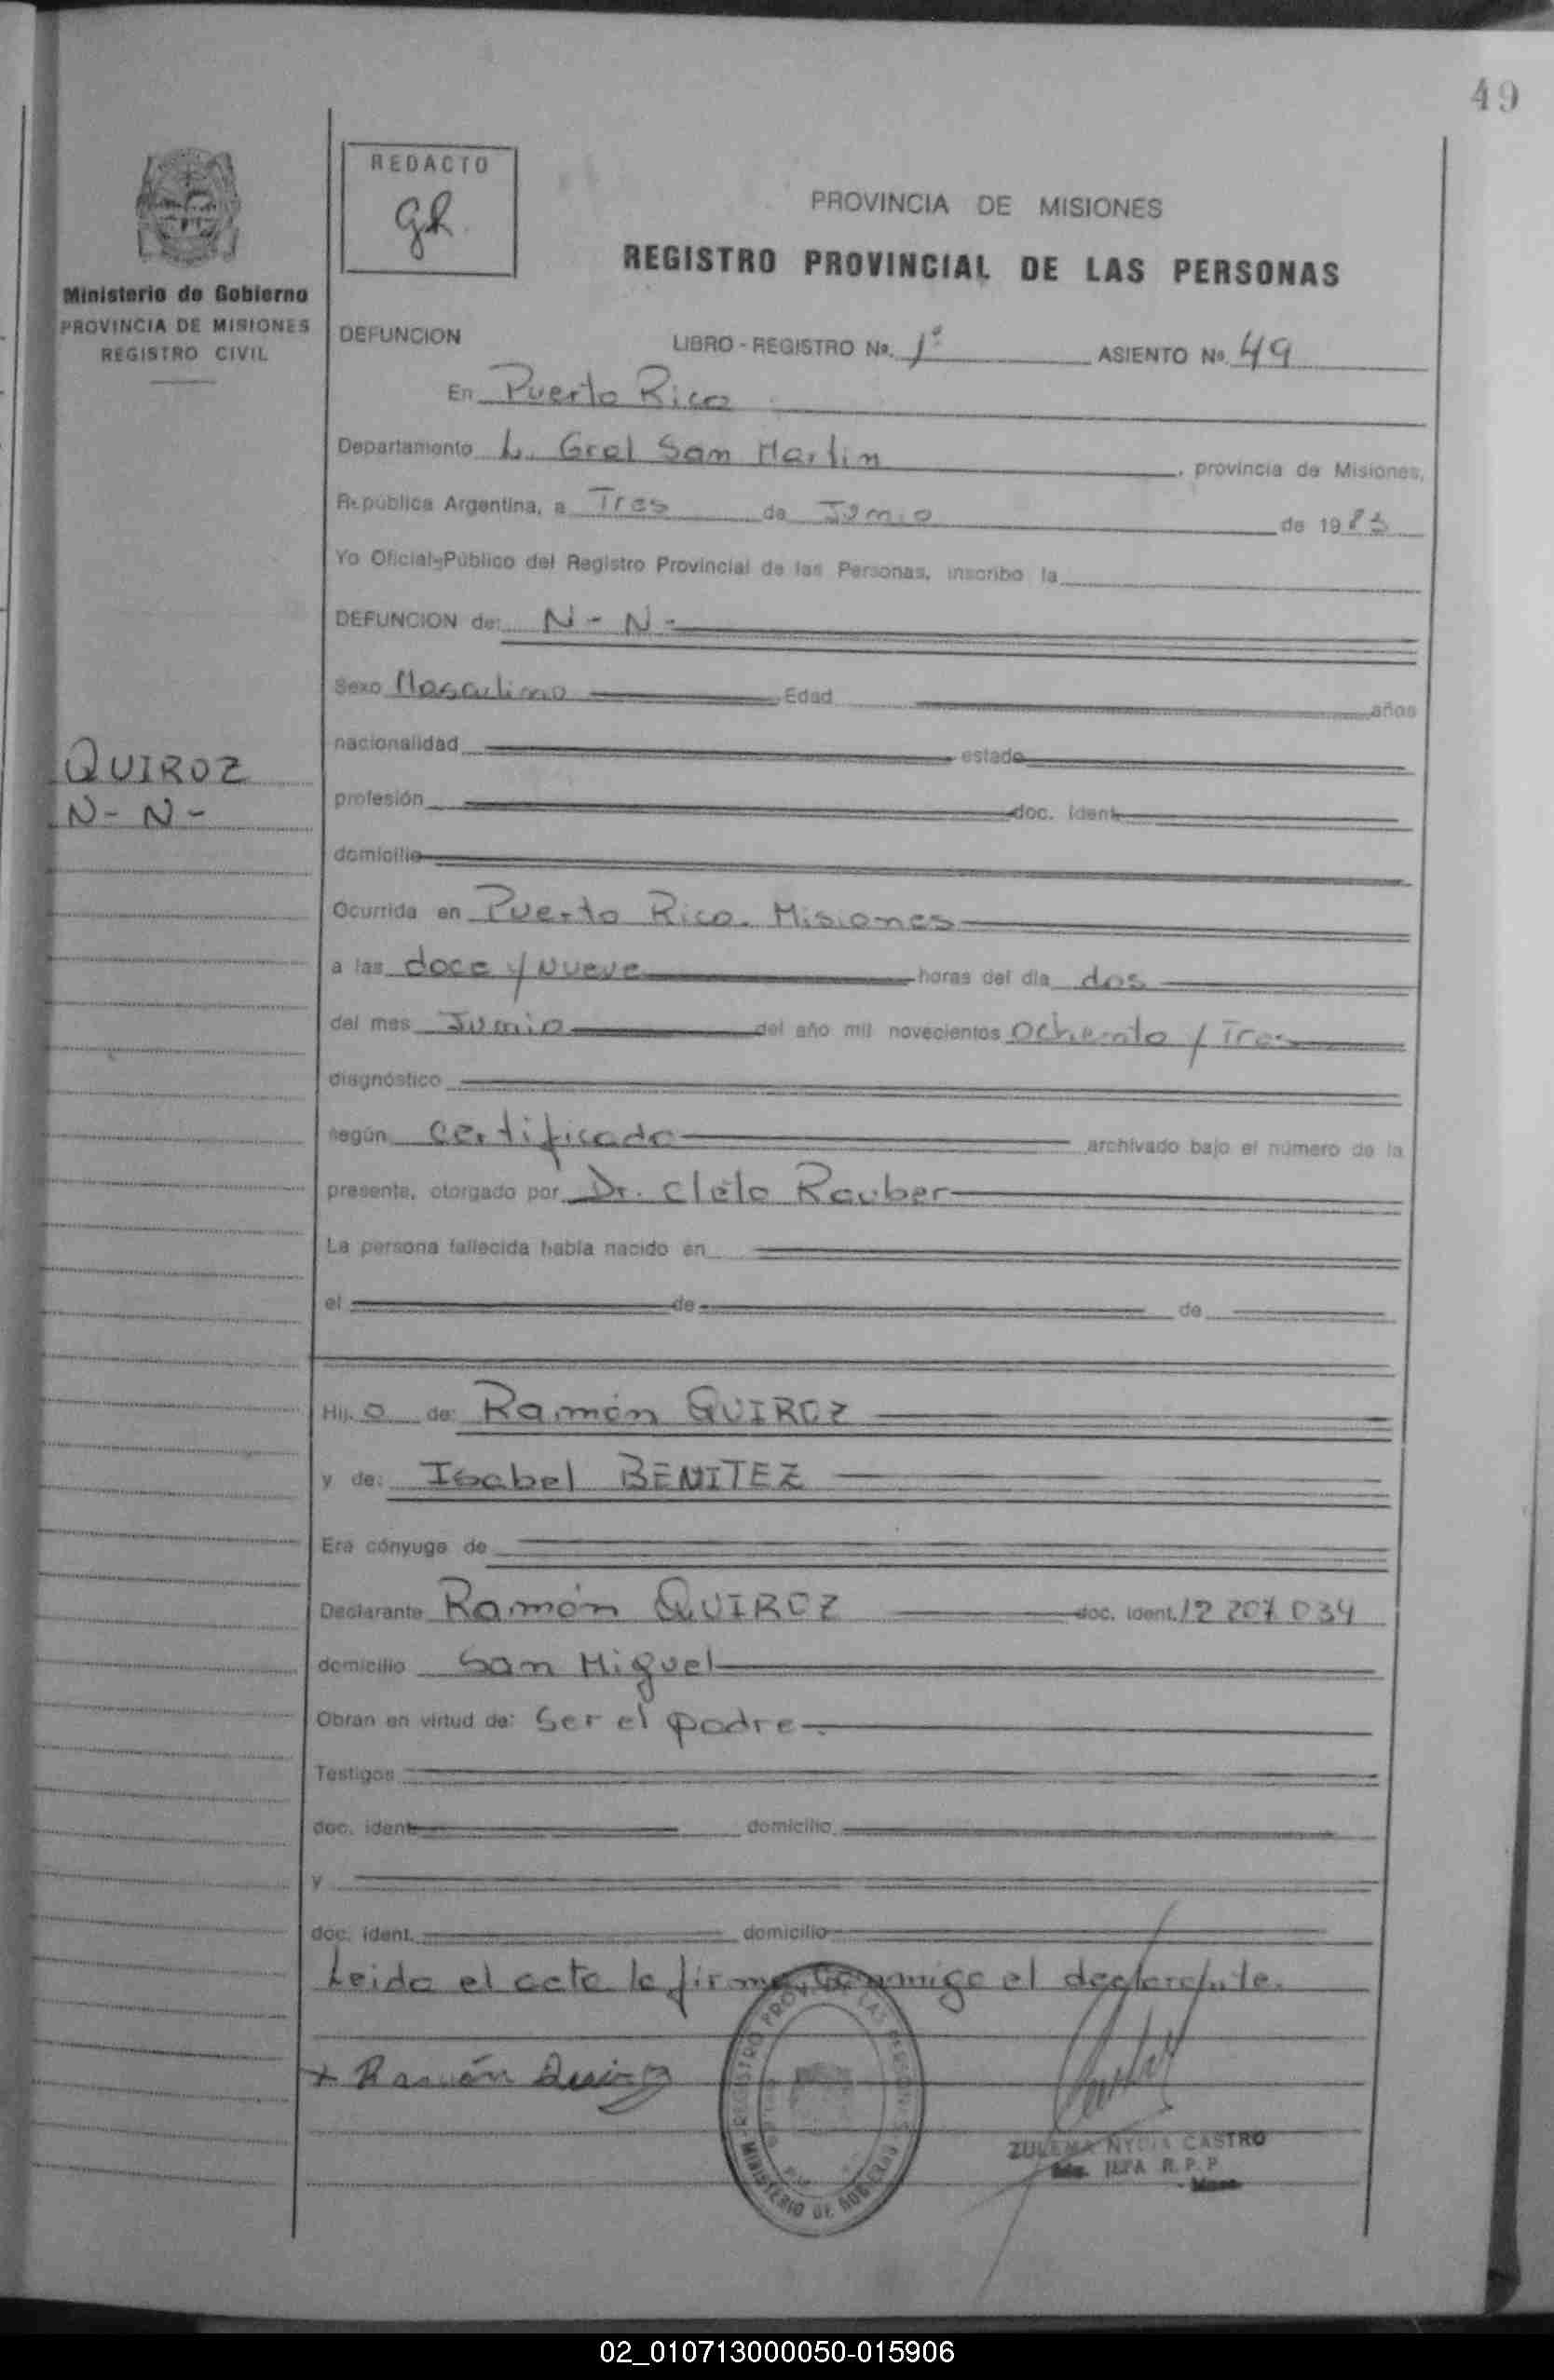 49
REDACTO
gR
PROVINCIA DE MISIONES
REGISTRO PROVINCIAL DE LAS PERSONAS
Ministerio de Gobierno
PROVINCIA DE MISIONES
REGISTRO CIVIL
DEFUNCION LIBRO - REGISTRO Nº. 1º ASIENTO Nº. 49
En Puerto Rico
Departamento L. Gral San Martin, provincia de Misiones,
República Argentina, a Tres de Junio de 1983
Yo Oficial-Público del Registro Provincial de las Personas, inscribo la
DEFUNCION de: N - N -
Sexo Masculino Edad años
nacionalidad estado
QUIROZ
N - N -
profesión doc. ident.
domicilio
Ocurrida en Puerto Rico. Misiones
a las doce y Nueve horas del día dos
del mes Junio del año mil novecientos ochenta y Tres
diagnóstico
según certificado archivado bajo el número de la
presente, otorgado por Dr. Cleto Rauber
La persona fallecida había nacido en
el de de
Hij o de: Ramón QUIROZ
y de: Isabel BENITEZ
Era cónyuge de
Declarante Ramón QUIROZ doc. ident. 12 207 034
domicilio San Miguel
Obran en virtud de: Ser el padre.
Testigos
doc. ident. domicilio
y
doc. ident. domicilio
Leida el acta la firma conmigo el declarante.
+ Ramón Quiroz
REGISTRO PROV. DE LAS PERSONAS
MINISTERIO DE GOBIERNO
ZULEMA NYDIA CASTRO
JEFA R. P. P.
02_010713000050-015906